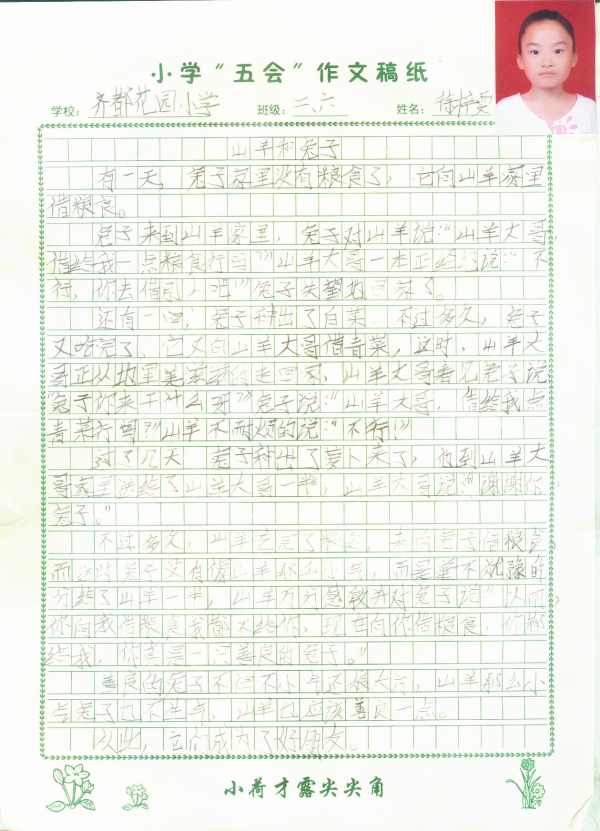 小学“五会”作文稿纸
学校：齐都花园小学 班级：二.六 姓名：徐梓雯
山羊和兔子
有一天，兔子家里没有粮食了，它向山羊家里
借粮食。
兔子来到山羊家里，兔子对山羊说：“山羊大哥，
借给我一点粮食行吗？”山羊大哥一本正经的说：“不
行，你去借别人吧”兔子失望地回家了。
还有一回，兔子种出了白菜，不过多久，兔子
又吃完了。它又向山羊大哥借青菜，这时，山羊大
哥正从地里美滋滋的走回家，山羊大哥看见兔子说
“兔子你来干什么呀”兔子说：“山羊大哥，借给我点
青菜行吗？”山羊不耐烦的说：“不行！”
过了几天 兔子种出了萝卜来了，他到山羊大
哥家里送给了山羊大哥一半，山羊大哥说“谢谢你
兔子。”
不过多久，山羊吃完了粮食，去向兔子借粮食
而这时兔子没有像山羊那么小气，而是毫不犹豫的
分给了山羊一半，山羊万分感激并对兔子说“以前
你向我借粮食我都不给你，现在向你借粮食，你都
给我，你真是一只善良的兔子。”
善良的兔子不但不小气还很大方，山羊那么小
气兔子也不生气，山羊也应该善良一点。
从此，它们成为了好朋友。
小荷才露尖尖角